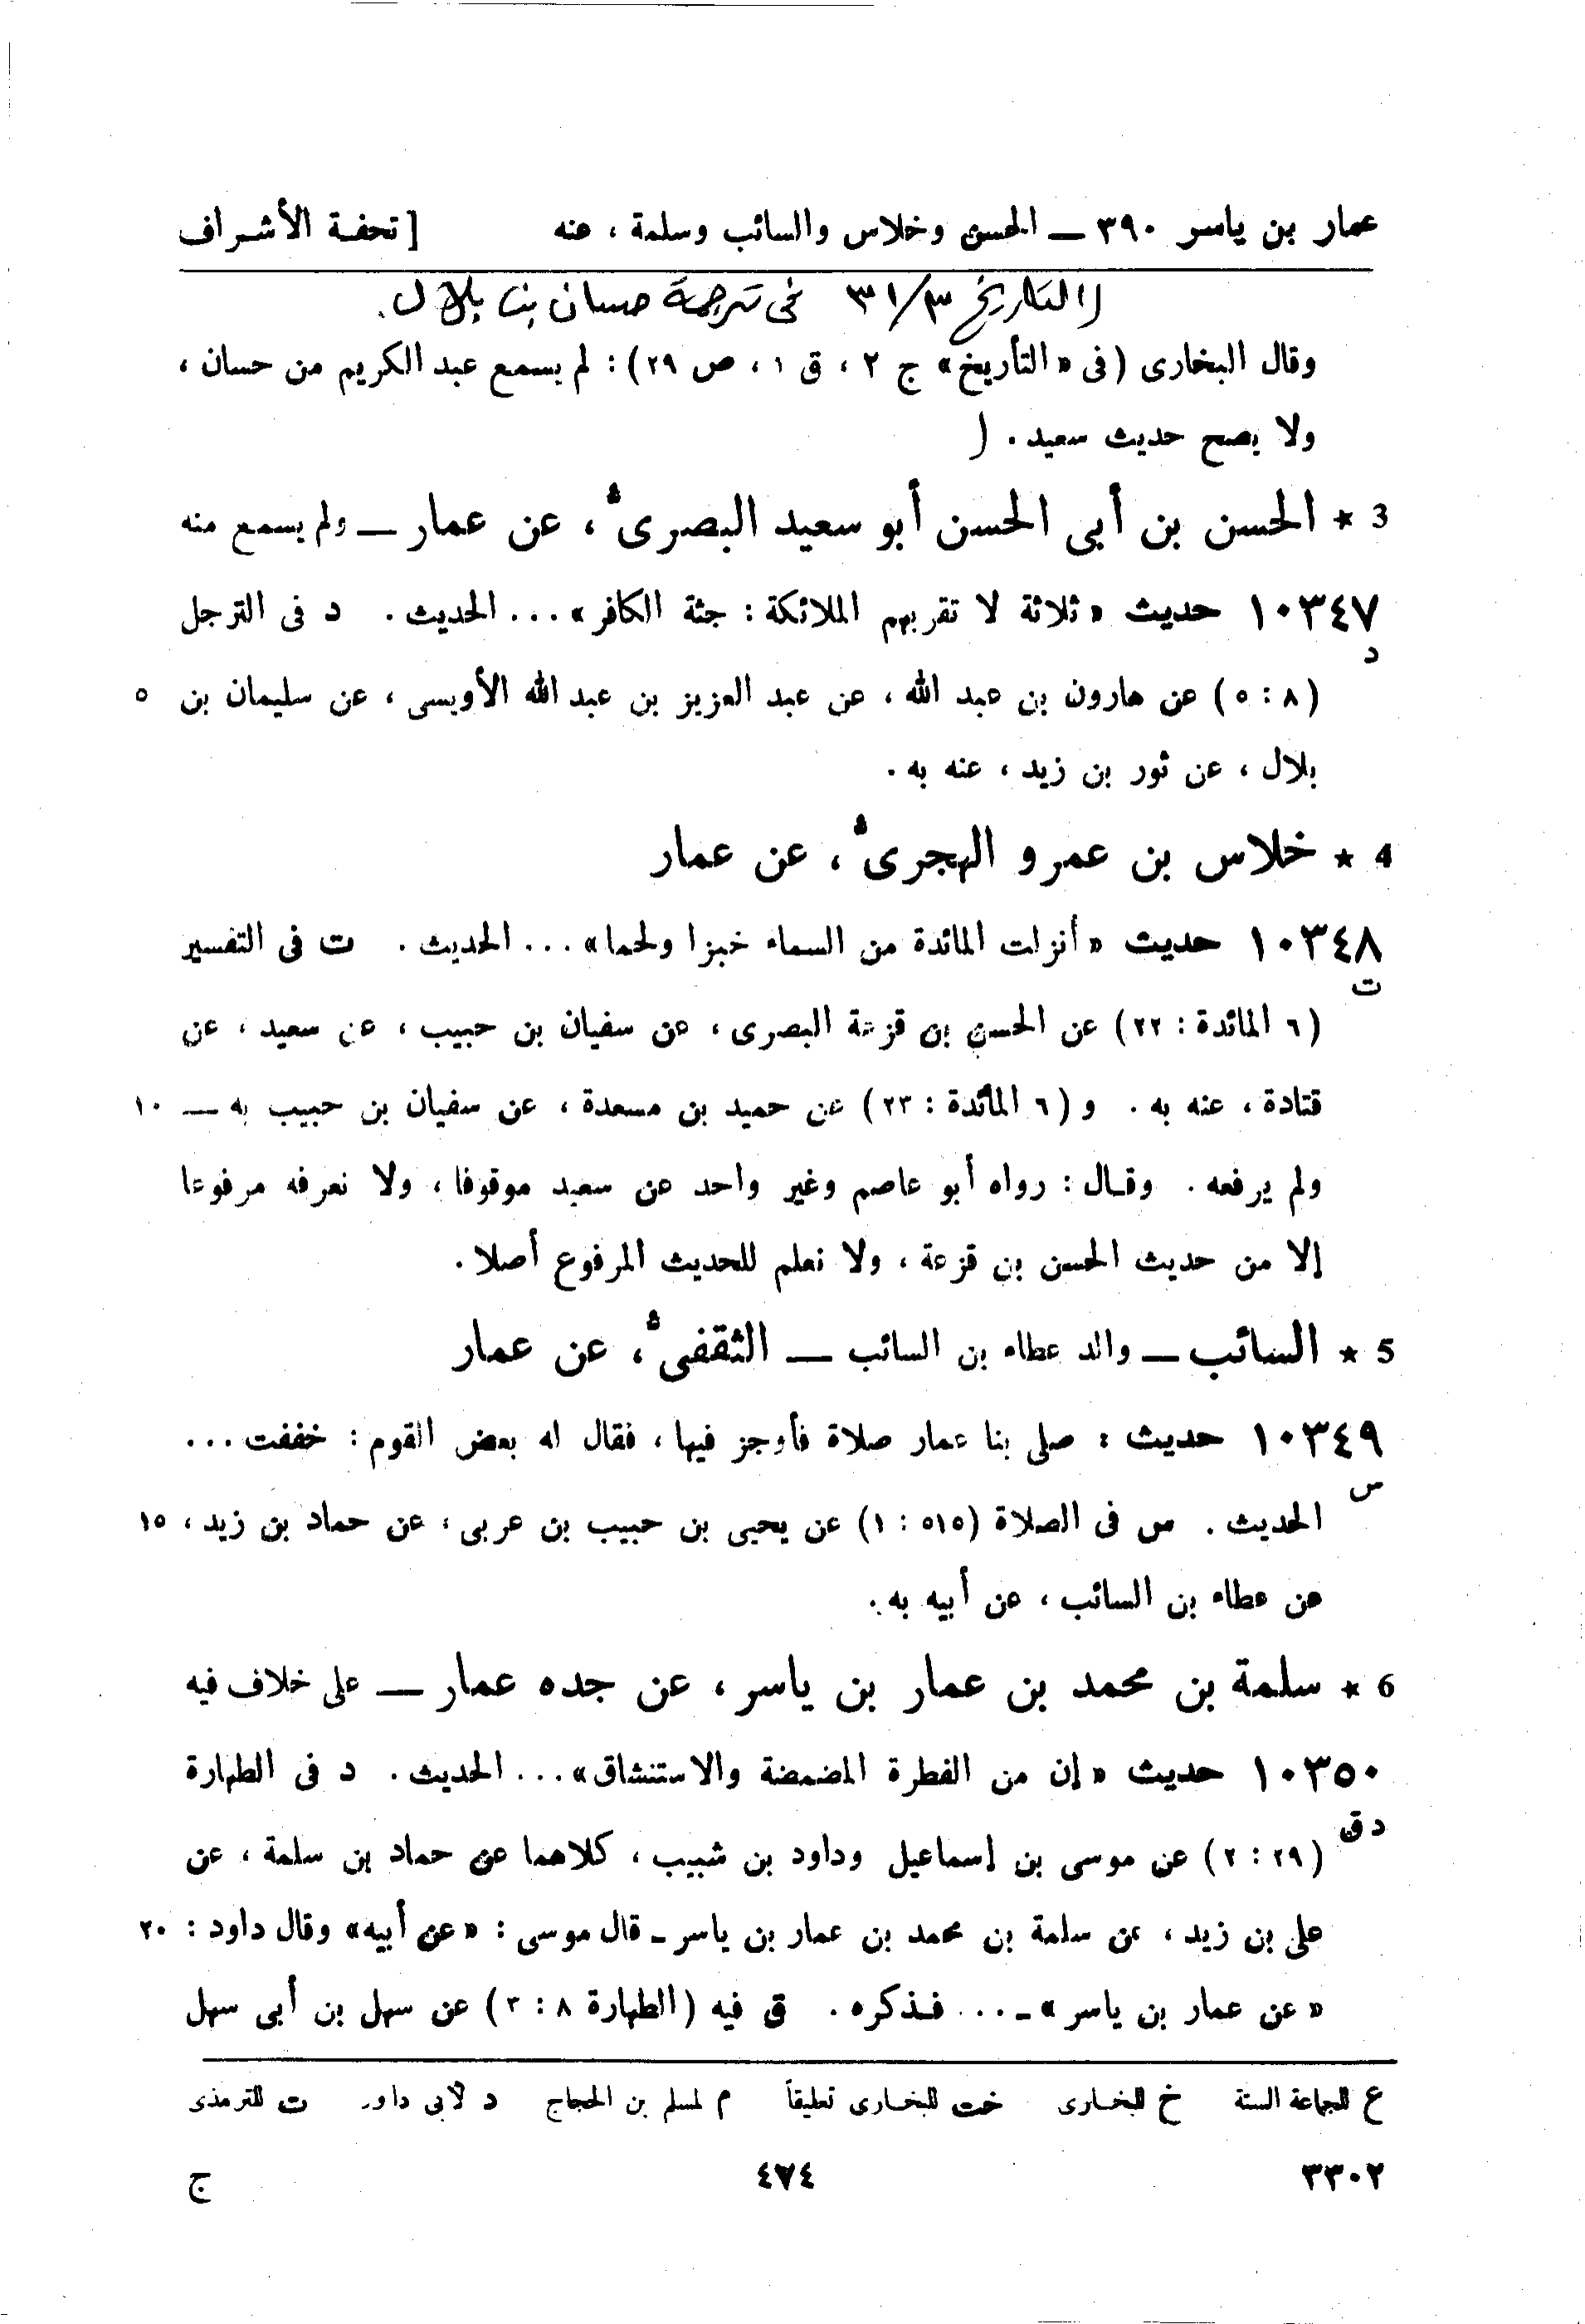 عمار بن ياسر ٣٩٠ — الحسن وخلاس والسائب وسلمة ، عنه [ تحفة الأشراف
التاريخ ٣١/٣ فى ترجمة حسان بن بلال .
وقال البخارى (فى « التأريخ» ج ٢ ، ق ١ ، ص ٢٩) : لم يسمع عبد الكريم من حسان ،
ولا يصح حديث سعيد .
3 ★ الحسن بن أبى الحسن أبو سعيد البصرىّ ، عن عمار — ولم يسمع منه
١٠٣٤٧ حديث « ثلاثة لا تقربهم الملائكة : جثة الكافر» ... الحديث . د فى الترجل
د
(٨ : ٥) عن هارون بن عبد الله ، عن عبد العزيز بن عبد الله الأويسى ، عن سليمان بن ٥
بلال ، عن ثور بن زيد ، عنه به .
4 ★ خلاس بن عمرو الهجرىّ ، عن عمار
١٠٣٤٨ حديث « أنزلت المائدة من السماء خبزا ولحما» ... الحديث . ت فى التفسير
ت
(٦ المائدة : ٢٢) عن الحسن بن قزعة البصرى ، عن سفيان بن حبيب ، عن سعيد ، عن
قتادة ، عنه به . و (٦ المائدة : ٢٣) عن حميد بن مسعدة ، عن سفيان بن حبيب به — ١٠
ولم يرفعه . وقال : رواه أبو عاصم وغير واحد عن سعيد موقوفا ، ولا نعرفه مرفوعا
إلا من حديث الحسن بن قزعة ، ولا نعلم للحديث المرفوع أصلا .
5 ★ السائب — والد عطاء بن السائب — الثقفىّ ، عن عمار
١٠٣٤٩ حديث : صلى بنا عمار صلاة فأوجز فيها ، فقال له بعض القوم : خففت ...
س
الحديث . س فى الصلاة (٥١٥ : ١) عن يحيى بن حبيب بن عربى ، عن حماد بن زيد ، ١٥
عن عطاء بن السائب ، عن أبيه به .
6 ★ سلمة بن محمد بن عمار بن ياسر ، عن جده عمار — على خلاف فيه
١٠٣٥٠ حديث « إن من الفطرة المضمضة والاستنشاق» ... الحديث . د فى الطهارة
د ق
(٢٩ : ٢) عن موسى بن إسماعيل وداود بن شبيب ، كلاهما عن حماد بن سلمة ، عن
على بن زيد ، عن سلمة بن محمد بن عمار بن ياسر - قال موسى : « عن أبيه» وقال داود : ٢٠
« عن عمار بن ياسر» - ... فذكره . ق فيه (الطهارة ٨ : ٣) عن سهل بن أبى سهل
ع للجماعة الستة خ للبخارى خت للبخارى تعليقاً م لمسلم بن الحجاج د لأبى داود ت للترمذى
٣٣٠٢ ٤٧٤ ج